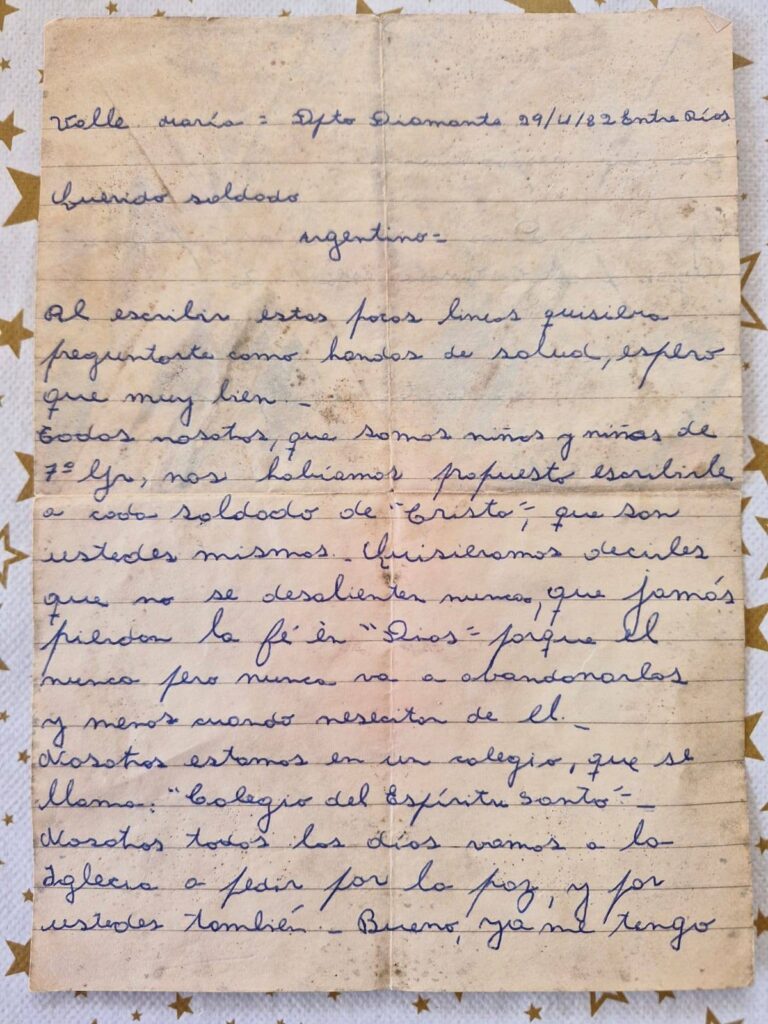 Valle María = Dpto Diamante 29/4/82 Entre Ríos
Querido soldado
argentino =
Al escribir estas pocas lineas quisiera
preguntarte como handas de salud, espero
que muy bien _
Todos nosotros, que somos niños y niñas de
7º Gr, nos habíamos propuesto escribirle
a cada soldado de "Cristo", que son
ustedes mismos _ Quisieramos decirles
que no se desalienten nunca, que jamás
pierdan la fé en "Dios" porque el
nunca pero nunca va a abandonarlos
y menos cuando nesecitan de El. _
Nosotros estamos en un colegio, que se
llama: "Colegio del Espíritu Santo" _
Nosotros todos los días vamos a la
Iglecia a pedir por la paz, y por
ustedes también _ Bueno, ya me tengo